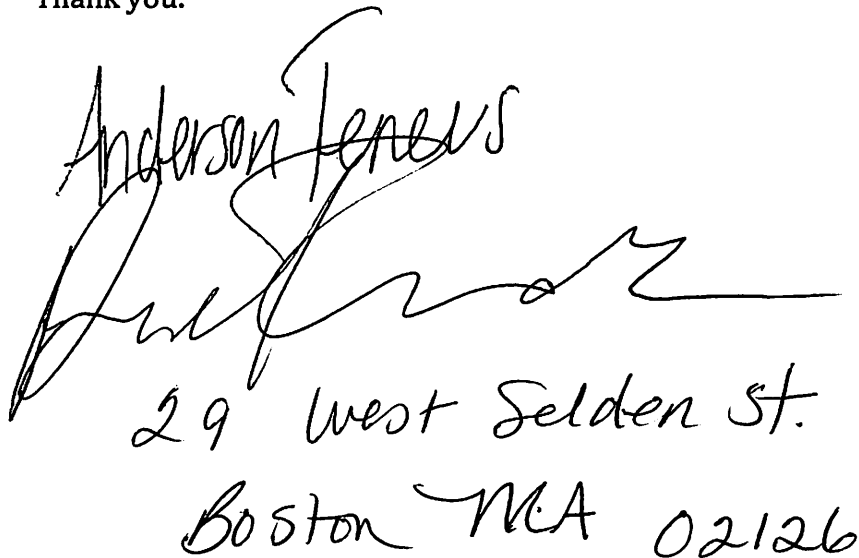 Thank you.
Anderson Teneus
29 West Selden St.
Boston MA 02126